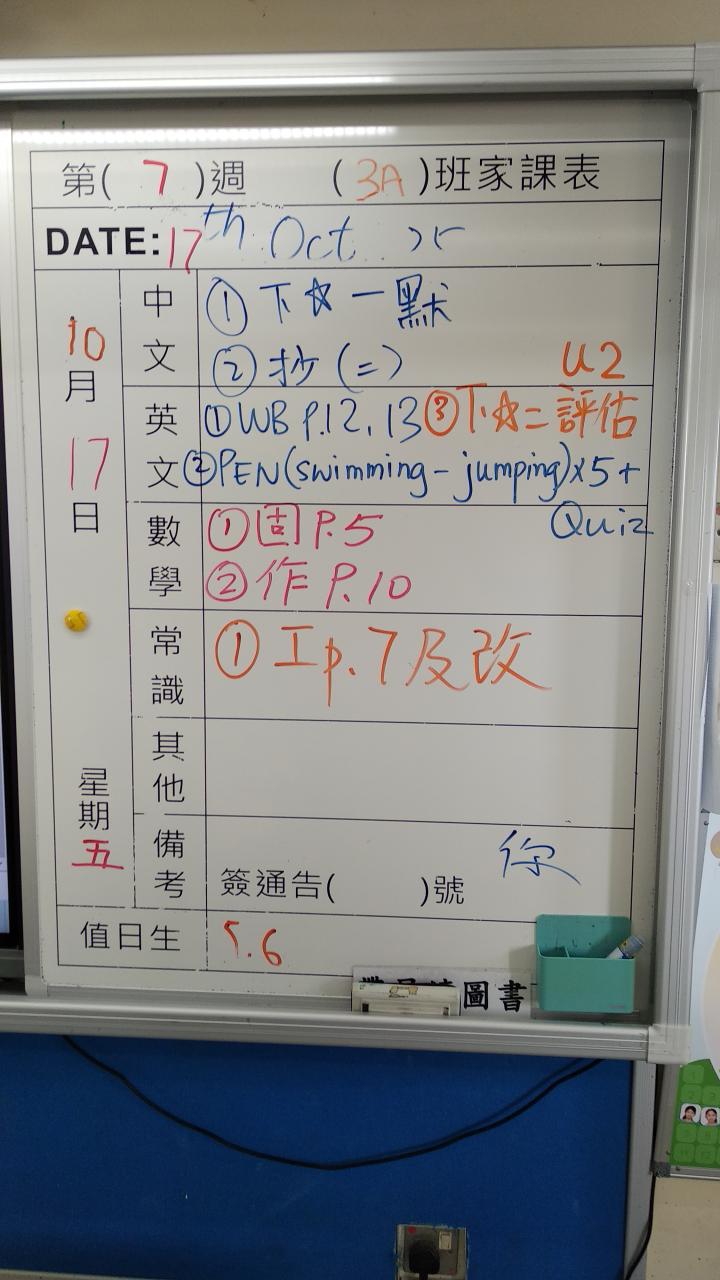 第( 7 )週 (3A)班家課表
DATE: 17th Oct 25
10月17日 星期五
中文
① 下☆一默
② 抄(二) U2
英文
① WB P.12, 13 ③ 下☆二評估
② PEN(swimming - jumping)x5 +
Quiz
數學
① 固 P.5
② 作 P.10
常識
① 工p.7及改
其他
備考
你
簽通告( )號
值日生 5.6
圖書